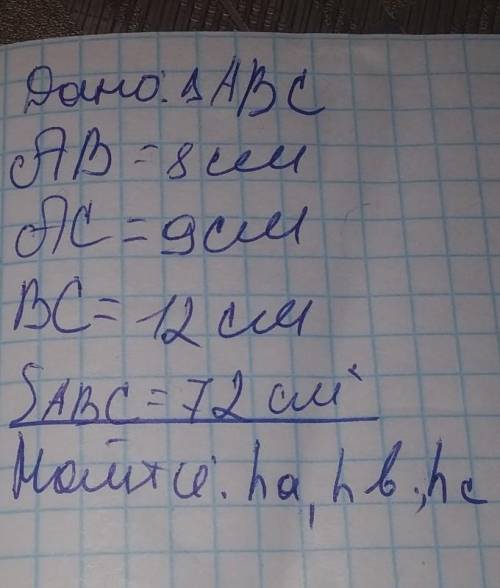 Дано: △ABC
AB = 8 см
AC = 9 см
BC = 12 см
SABC = 72 см²
Найти: ha, hb, hc